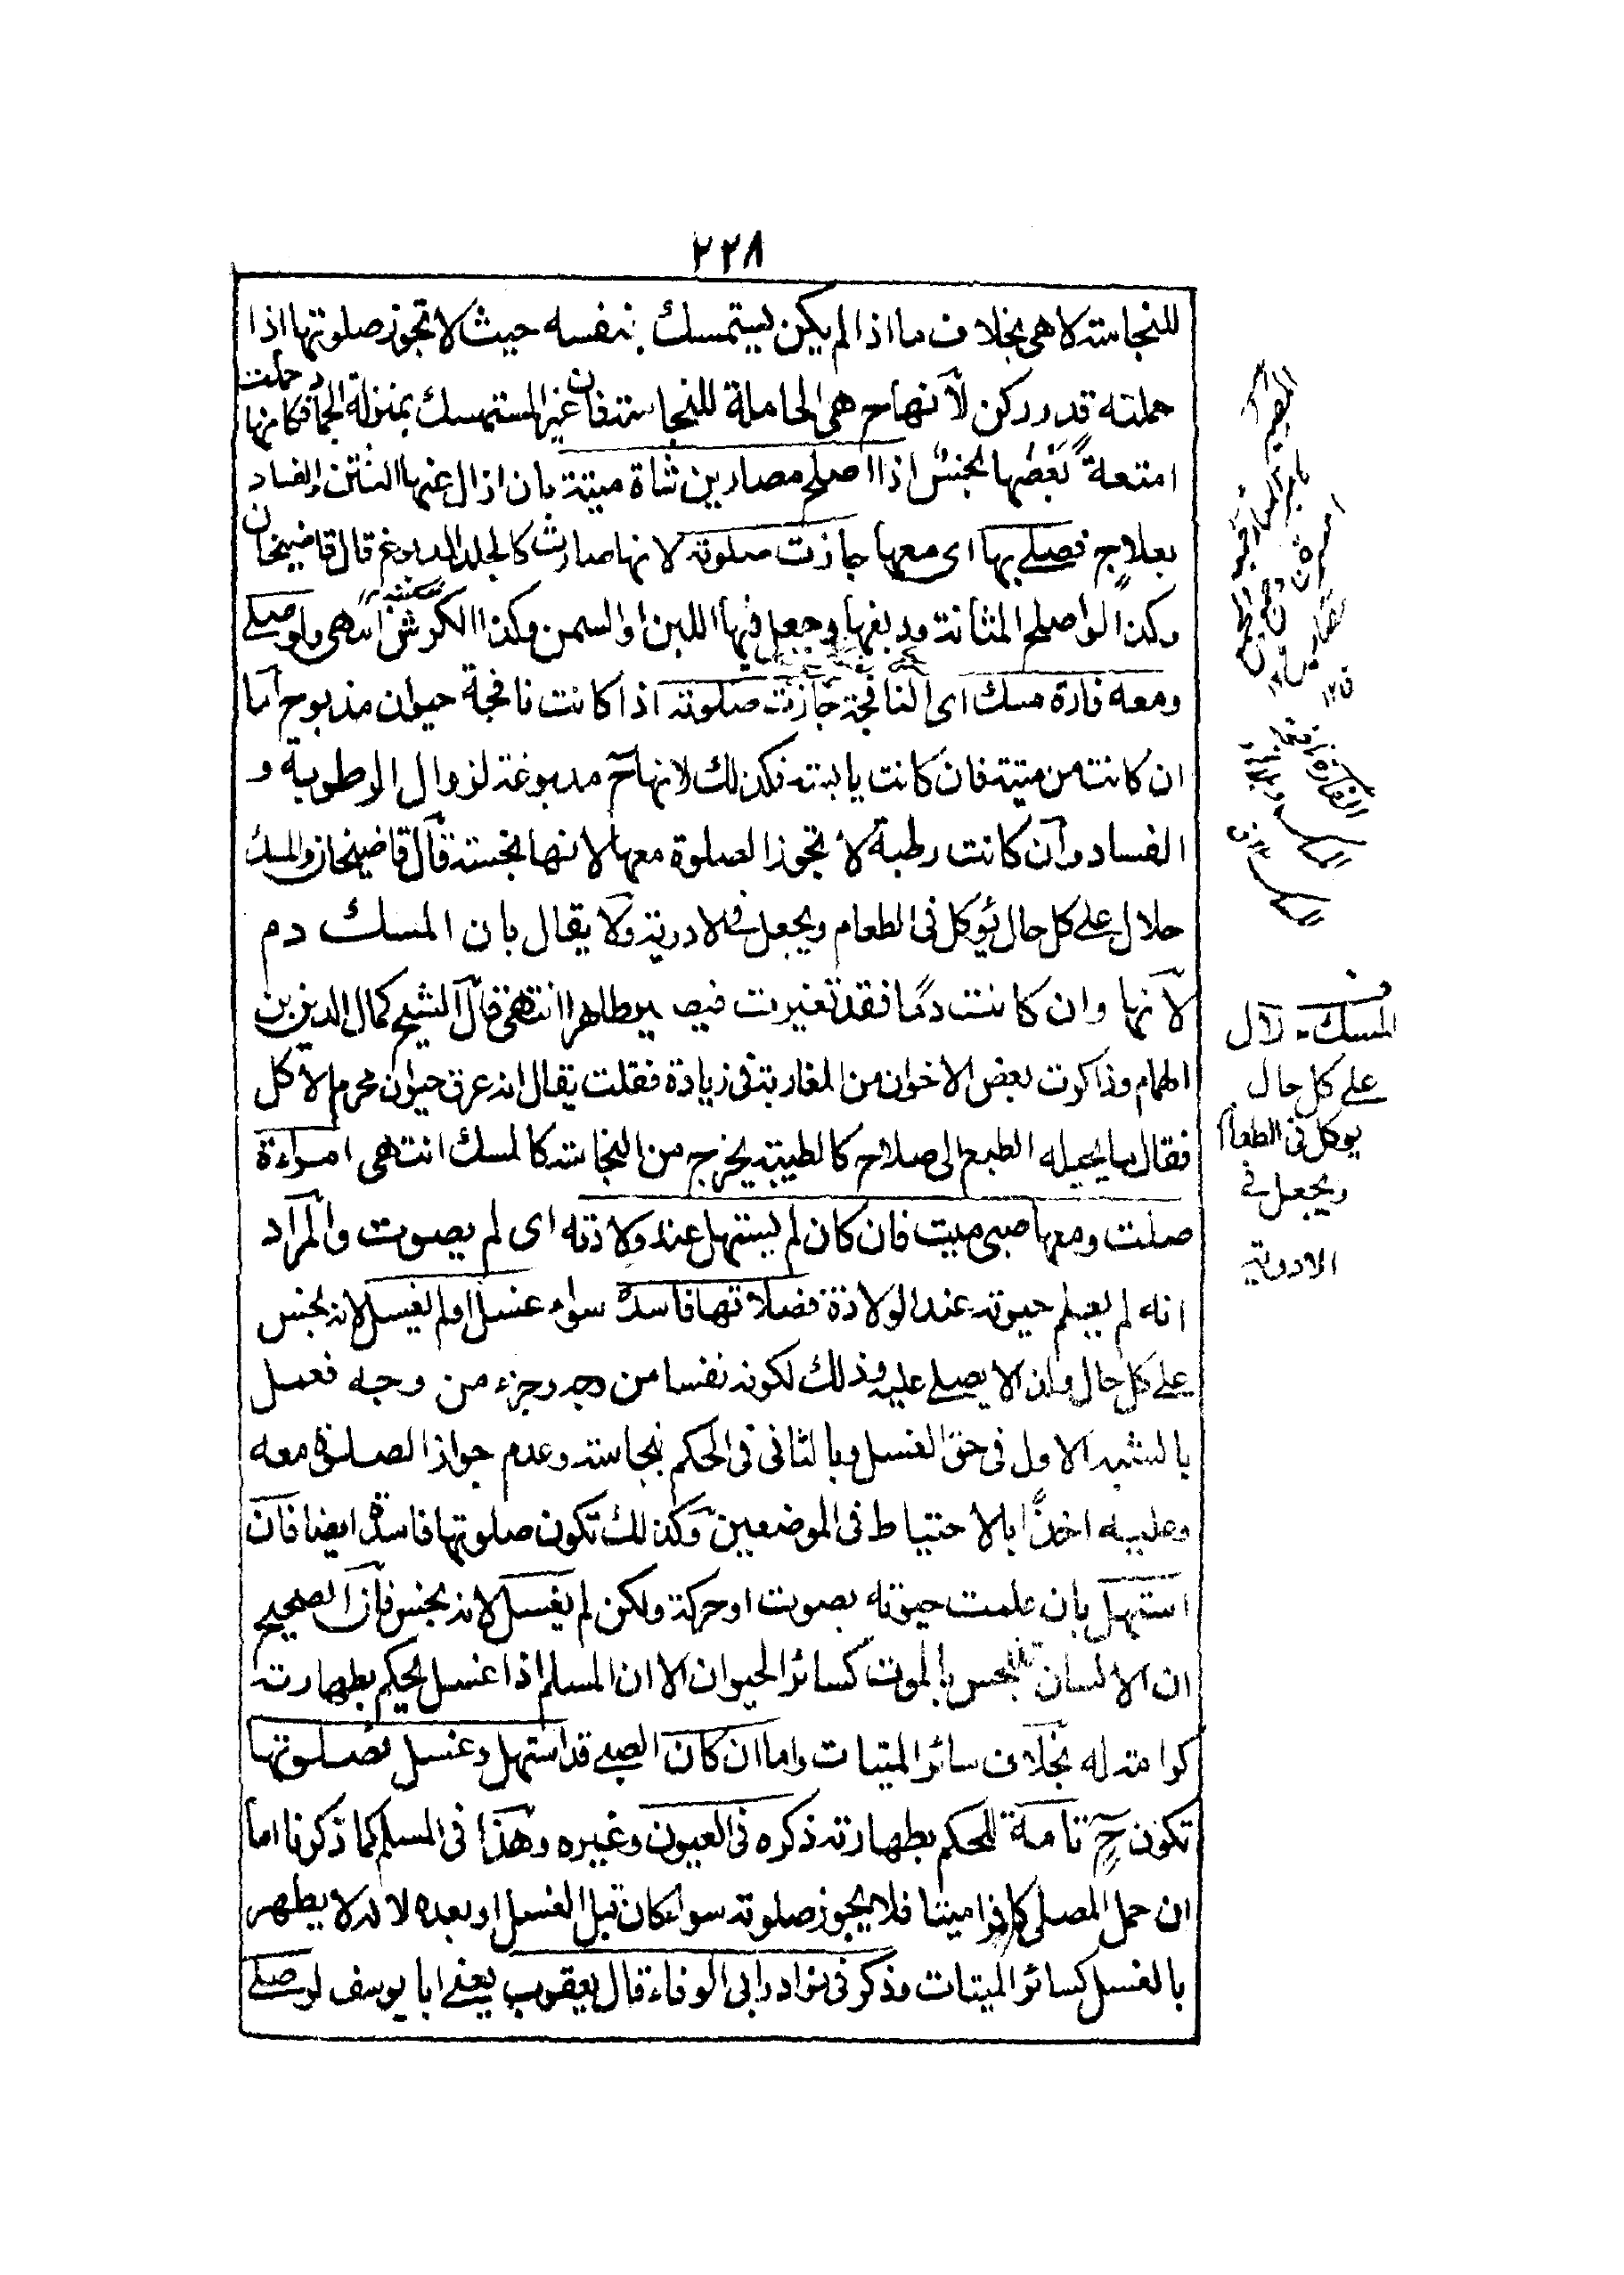 ٢٢٨
للنجاسة لا هى بخلاف ما اذا لم يكن يستمسك بنفسه حيث لا تجوز صلوتها اذا
حملته قدر ركن لانها ح هى الحاملة للنجاسة فان غير المستمسك بمنزلة الجماد فكانها حملت
امتعة بعضها نجس اذا اصلح مصارين شاة ميتة بان ازال عنها النتن والفساد
بعلاج فصلى بها اى معها جازت صلوته لانها صارت كالجلد المدبوغ قال قاضيخان
وكذا لو اصلح المثانة ودبغها وجعل فيها اللبن او السمن وكذا الكرش انتهى ولو صلى
ومعه فارة مسك اى النافجة جازت صلوته اذا كانت نافجة حيوان مذبوح اما
ان كانت من ميتة فان كانت يابسة فكذلك لانها ح مدبوغة لزوال الرطوبة و
الفساد وان كانت رطبة لا تجوز الصلوة معها لانها نجسة قال قاضيخان والمسك
حلال على كل حال يؤكل فى الطعام ويجعل فى الادوية ولا يقال بان المسك دم
لانها وان كانت دمًا فقد تغيرت فيصير طاهرا انتهى قال الشيخ كمال الدين بن
الهمام وذاكرت بعض الاخوان من المغاربة فى زيادة فقلت يقال انه عرق حيوان محرم الاكل
فقال ما يحيله الطبع الى صلاح كالطيبة يخرج من النجاسة كالمسك انتهى امراءة
صلت ومعها صبى ميت فان كان لم يستهل عند ولادته اى لم يصوت والمراد
انه لم يعلم حيوته عند الولادة فصلاتها فاسدة سواء غسل او لم يغسل لانه نجس
على كل حال وان لا يصلى عليه وذلك لكونه نفسا من وجه وجزء من وجه فعمل
بالشبه الاول فى حق الغسل وبالثانى فى الحكم بنجاسته وعدم جواز الصلوة معه
وعليه اخذًا بالاحتياط فى الموضعين وكذلك تكون صلوتها فاسدة ايضا فان
استهل بان علمت حيوته بصوت او حركة ولكن لم يغسل لانه نجس فان الصحيح
ان الانسان يتنجس بالموت كسائر الحيوان الا ان المسلم اذا غسل يحكم بطهارته
كرامة له بخلاف سائر الميتات واما ان كان الصبى قد استهل وغسل فصلوتها
تكون ح تامة للحكم بطهارته ذكره فى العيون وغيره وهذا فى المسلم كما ذكرنا اما
ان حمل المصلى كافرا ميتا فلا يجوز صلوته سواء كان قبل الغسل او بعده لانه لا يطهر
بالغسل كسائر الميتات وذكر فى نوادر ابى الوفاء قال يعقوب يعنى ابا يوسف لو صلى
المسك حلال
على كل حال
يوكل فى الطعام
ويجعل فى
الادوية